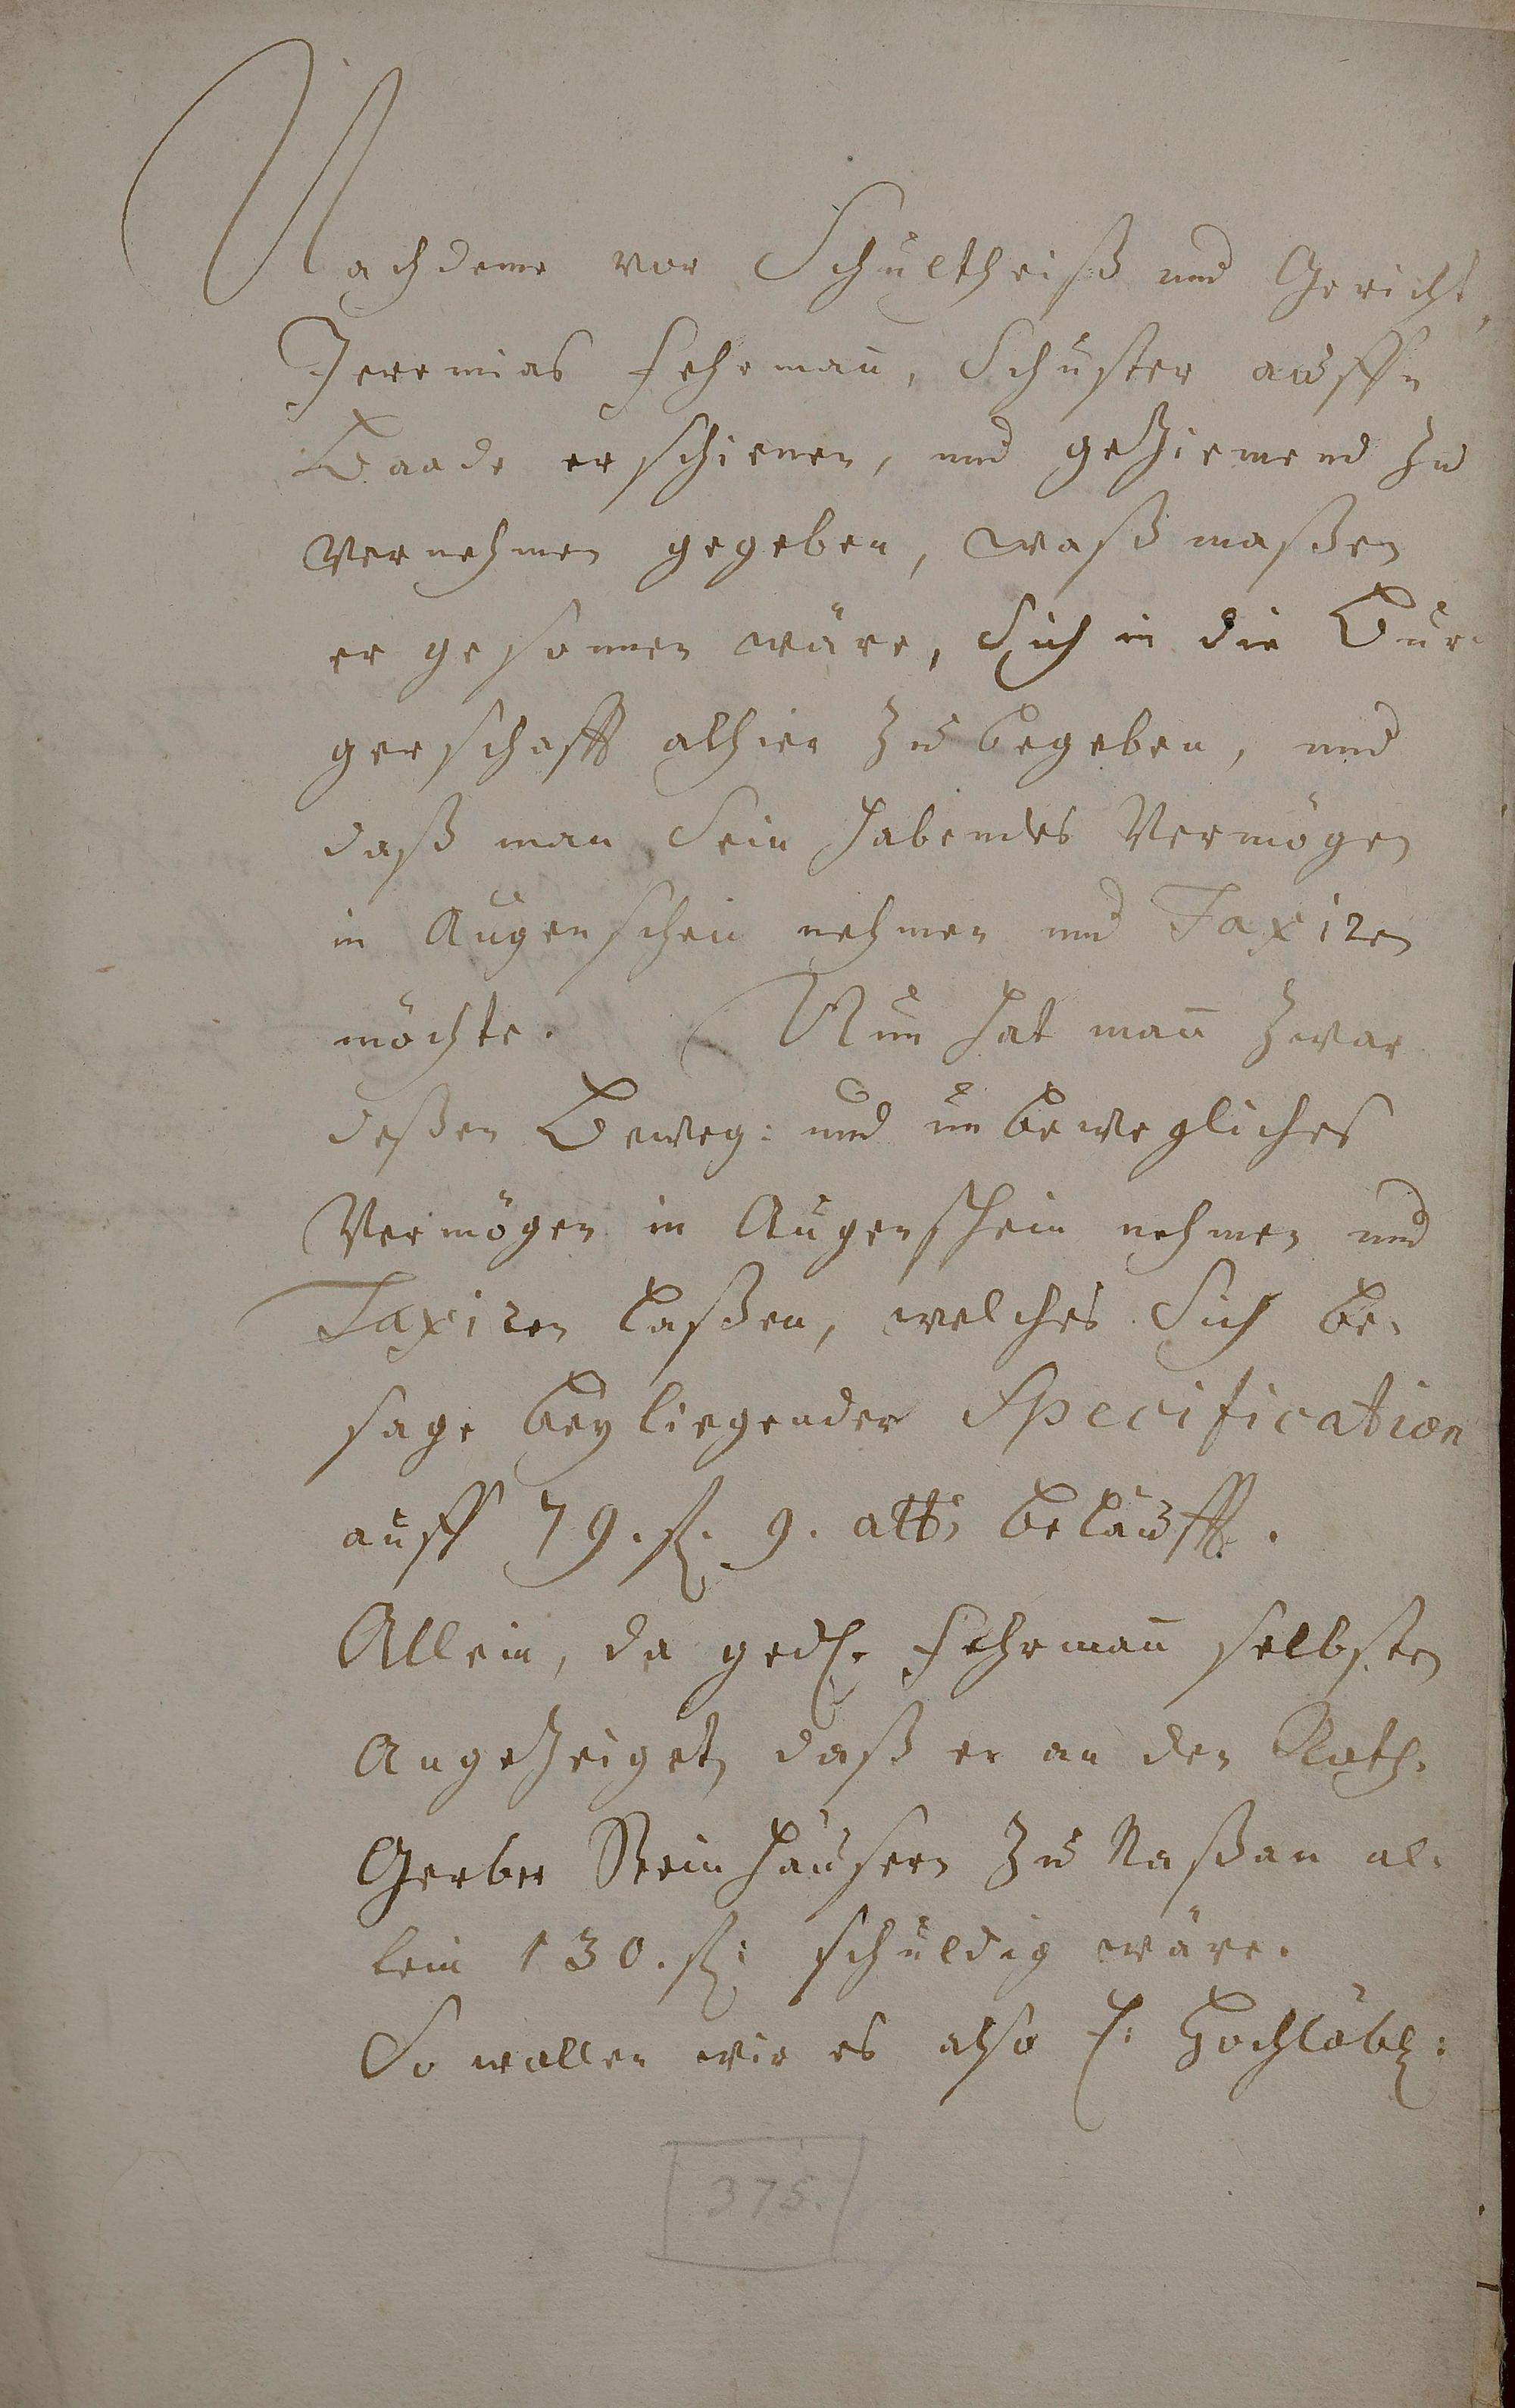 Nachdeme vor Schultheiß und Gericht,
Jeremias Fehrman̄, Schuster auffn
Baade erschienen, und geziemend zu
vernehmen gegeben, waß maßen
er gesonnen wäre, Sich in die Bur-
gerschafft alhier zu begeben, und
daß man Sein habendes Vermögen
in Augenschein nehmen und Taxiren
möchte. Nun hat man̄ zwar
deßen Beweg: und unbewegliches
Vermögen in Augenschein nehmen und
Taxiren laßen, welches Sich be-
sage beyliegender Specification
auff 79. fl. 9. alb. belaufft.
Allein, da gedl. Fehrman̄ selbsten
Angezeiget, daß er an den Roth-
Gerber Steinhäusern zu Naßau al-
lein 130. fl: schuldig wäre.
So wollen wir es also E: Hochlöbl:
375.